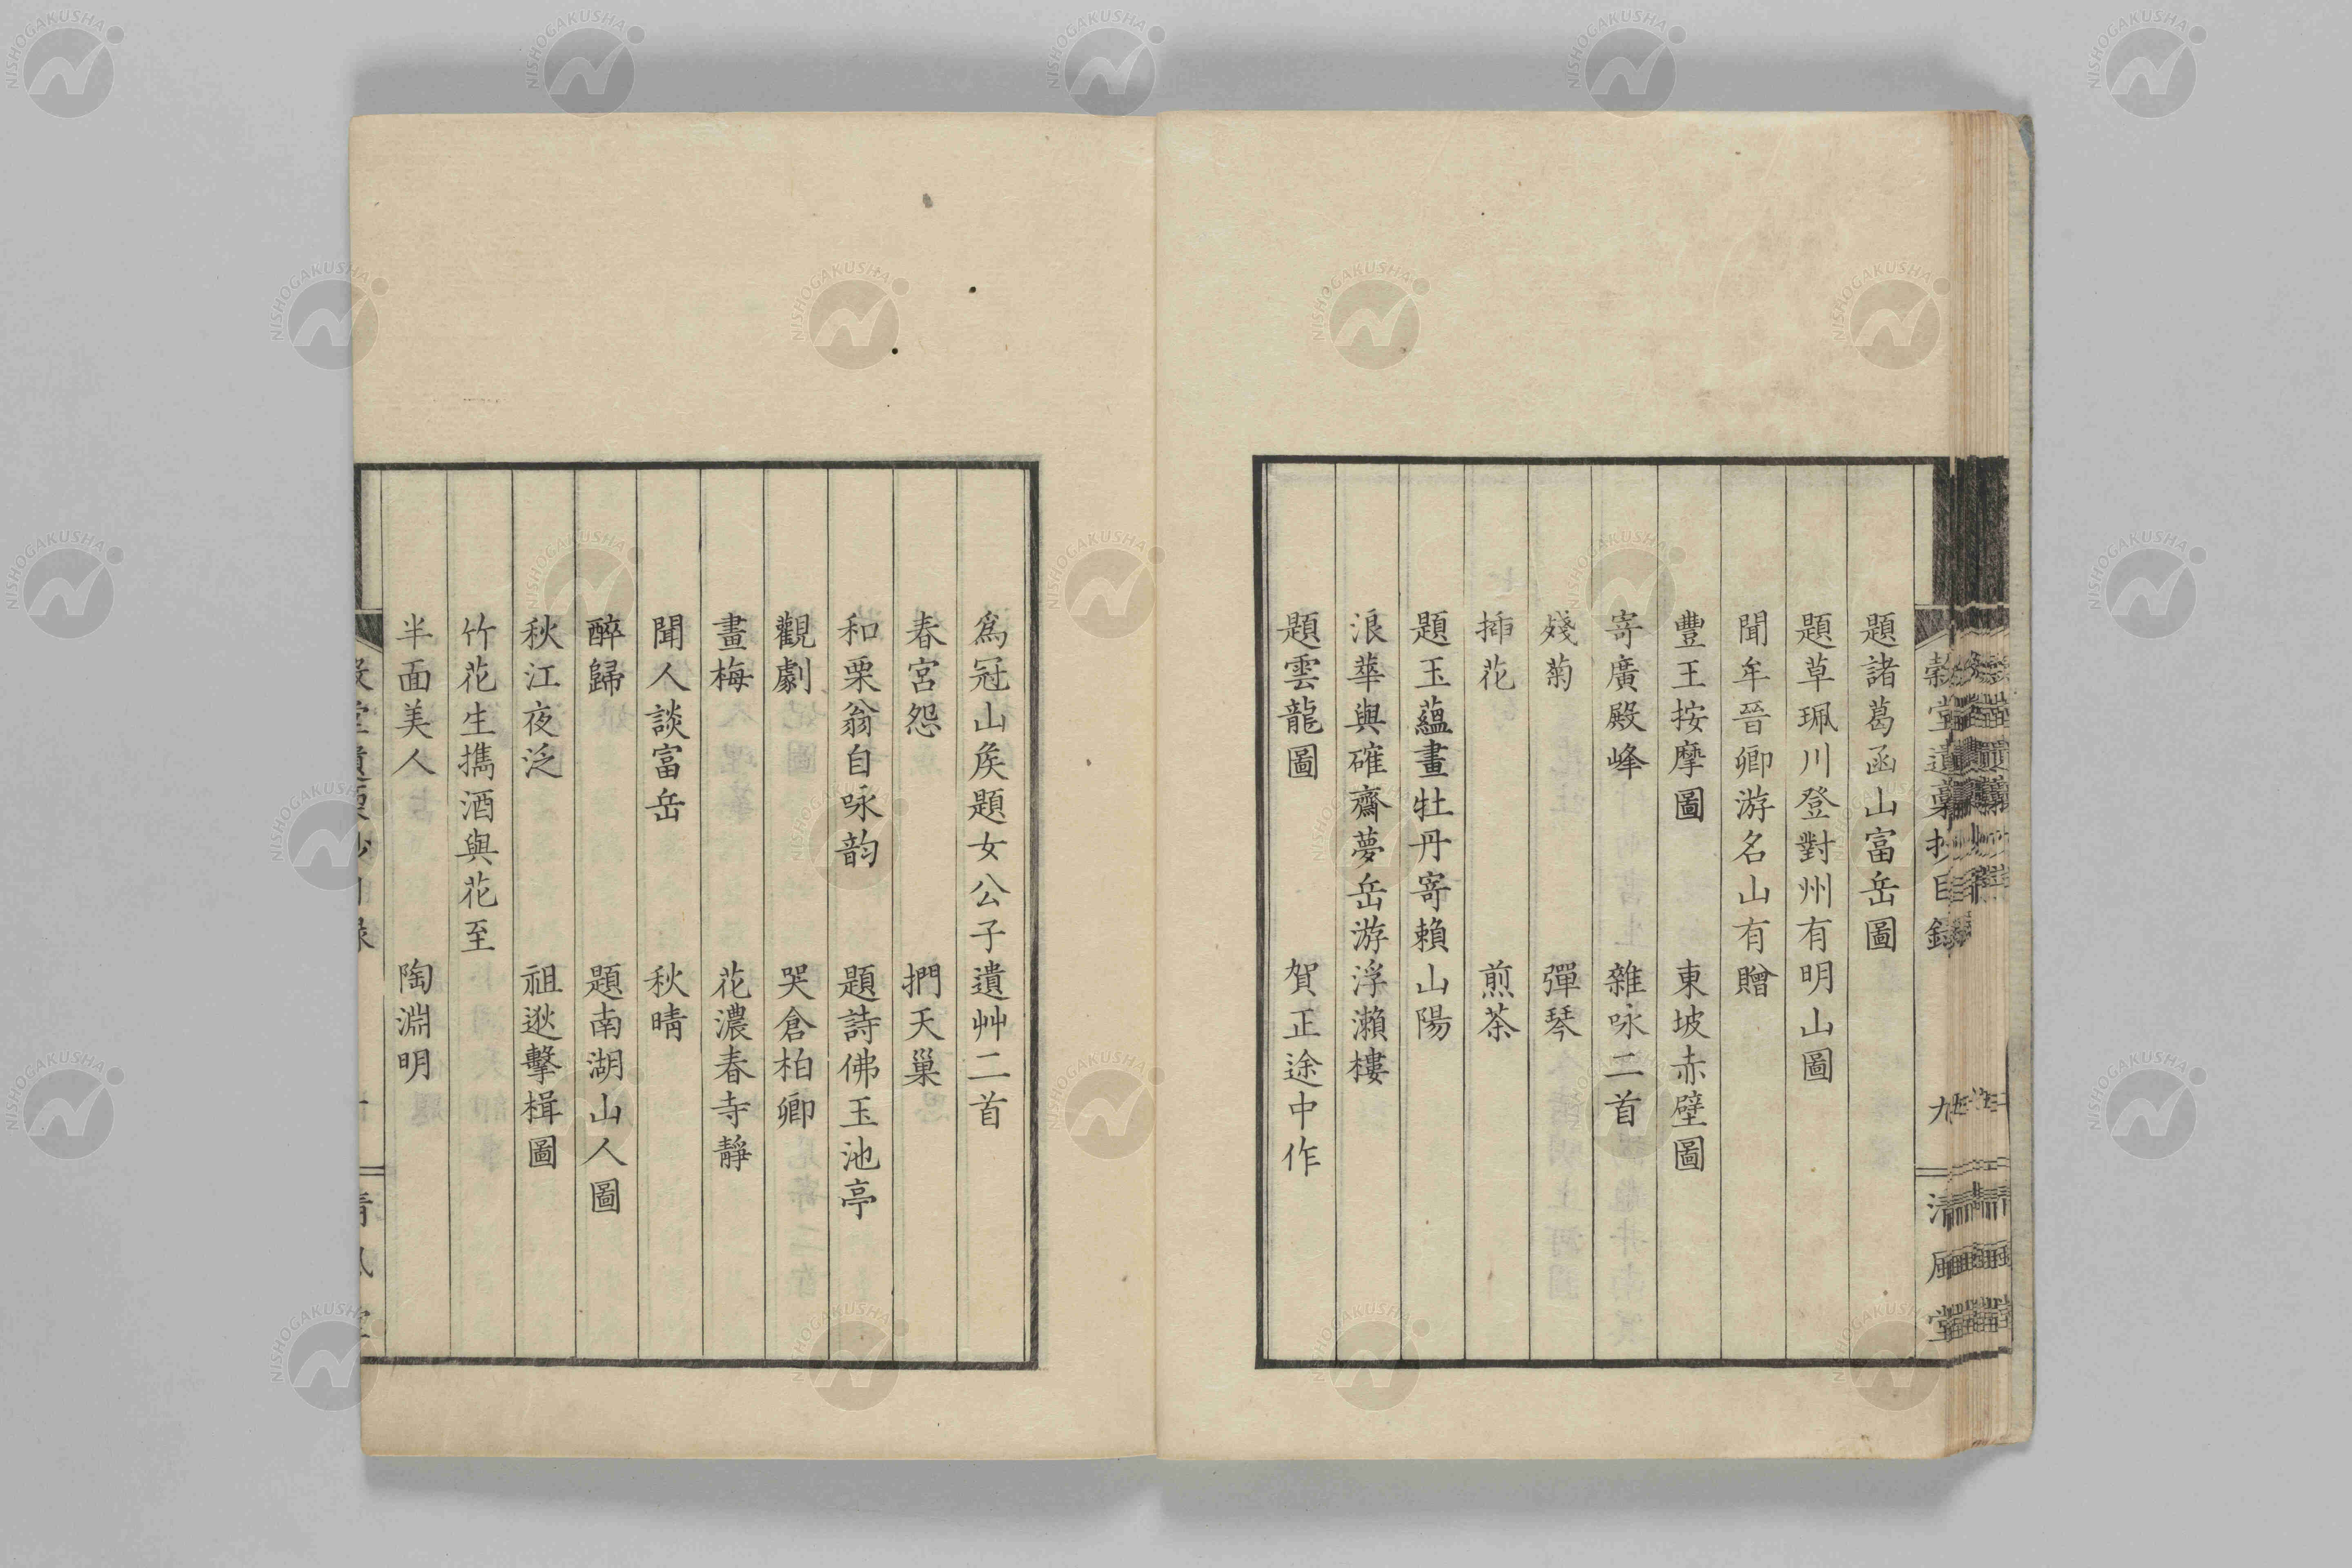 穀堂遺稾抄目錄 九 清風堂
題諸葛函山富岳圖
題草珮川登對州有明山圖
聞牟晉卿游名山有贈
豐王按摩圖 東坡赤壁圖
寄廣殿峰 雜咏二首
殘菊 彈琴
挿花 煎茶
題玉蘊畫牡丹寄賴山陽
浪華與確齋夢岳游浮瀨樓
題雲龍圖 賀正途中作
爲冠山矦題女公子遺艸二首
春宮怨 捫天巢
和栗翁自咏韵 題詩佛玉池亭
觀劇 哭倉柏卿
畫梅 花濃春寺靜
聞人談富岳 秋晴
醉歸 題南湖山人圖
秋江夜泛 祖逖擊楫圖
竹花生攜酒與花至
半面美人 陶淵明
NISHOGAKUSHA